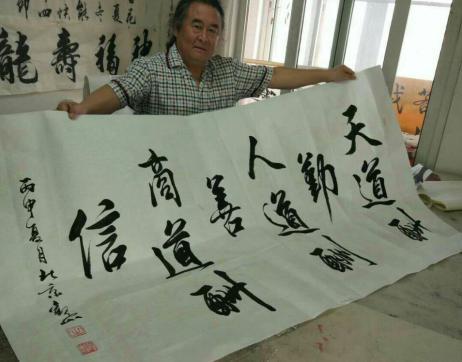 天道酬勤
人道酬善
商道酬信
丙申夏月北京
福壽龍